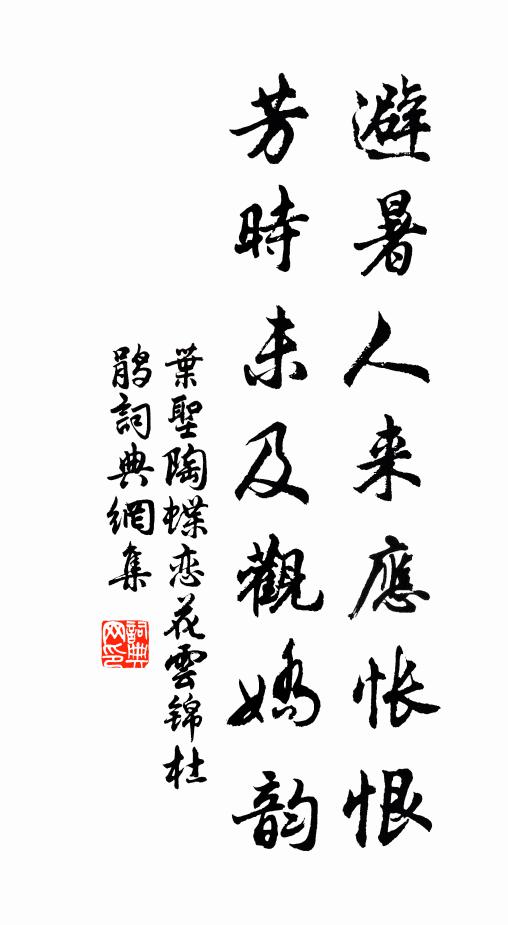 避暑人来應悵恨
芳時未及觀嬌韵
葉聖陶蝶恋花雲錦杜
鵑詞典網集
詞典
网印